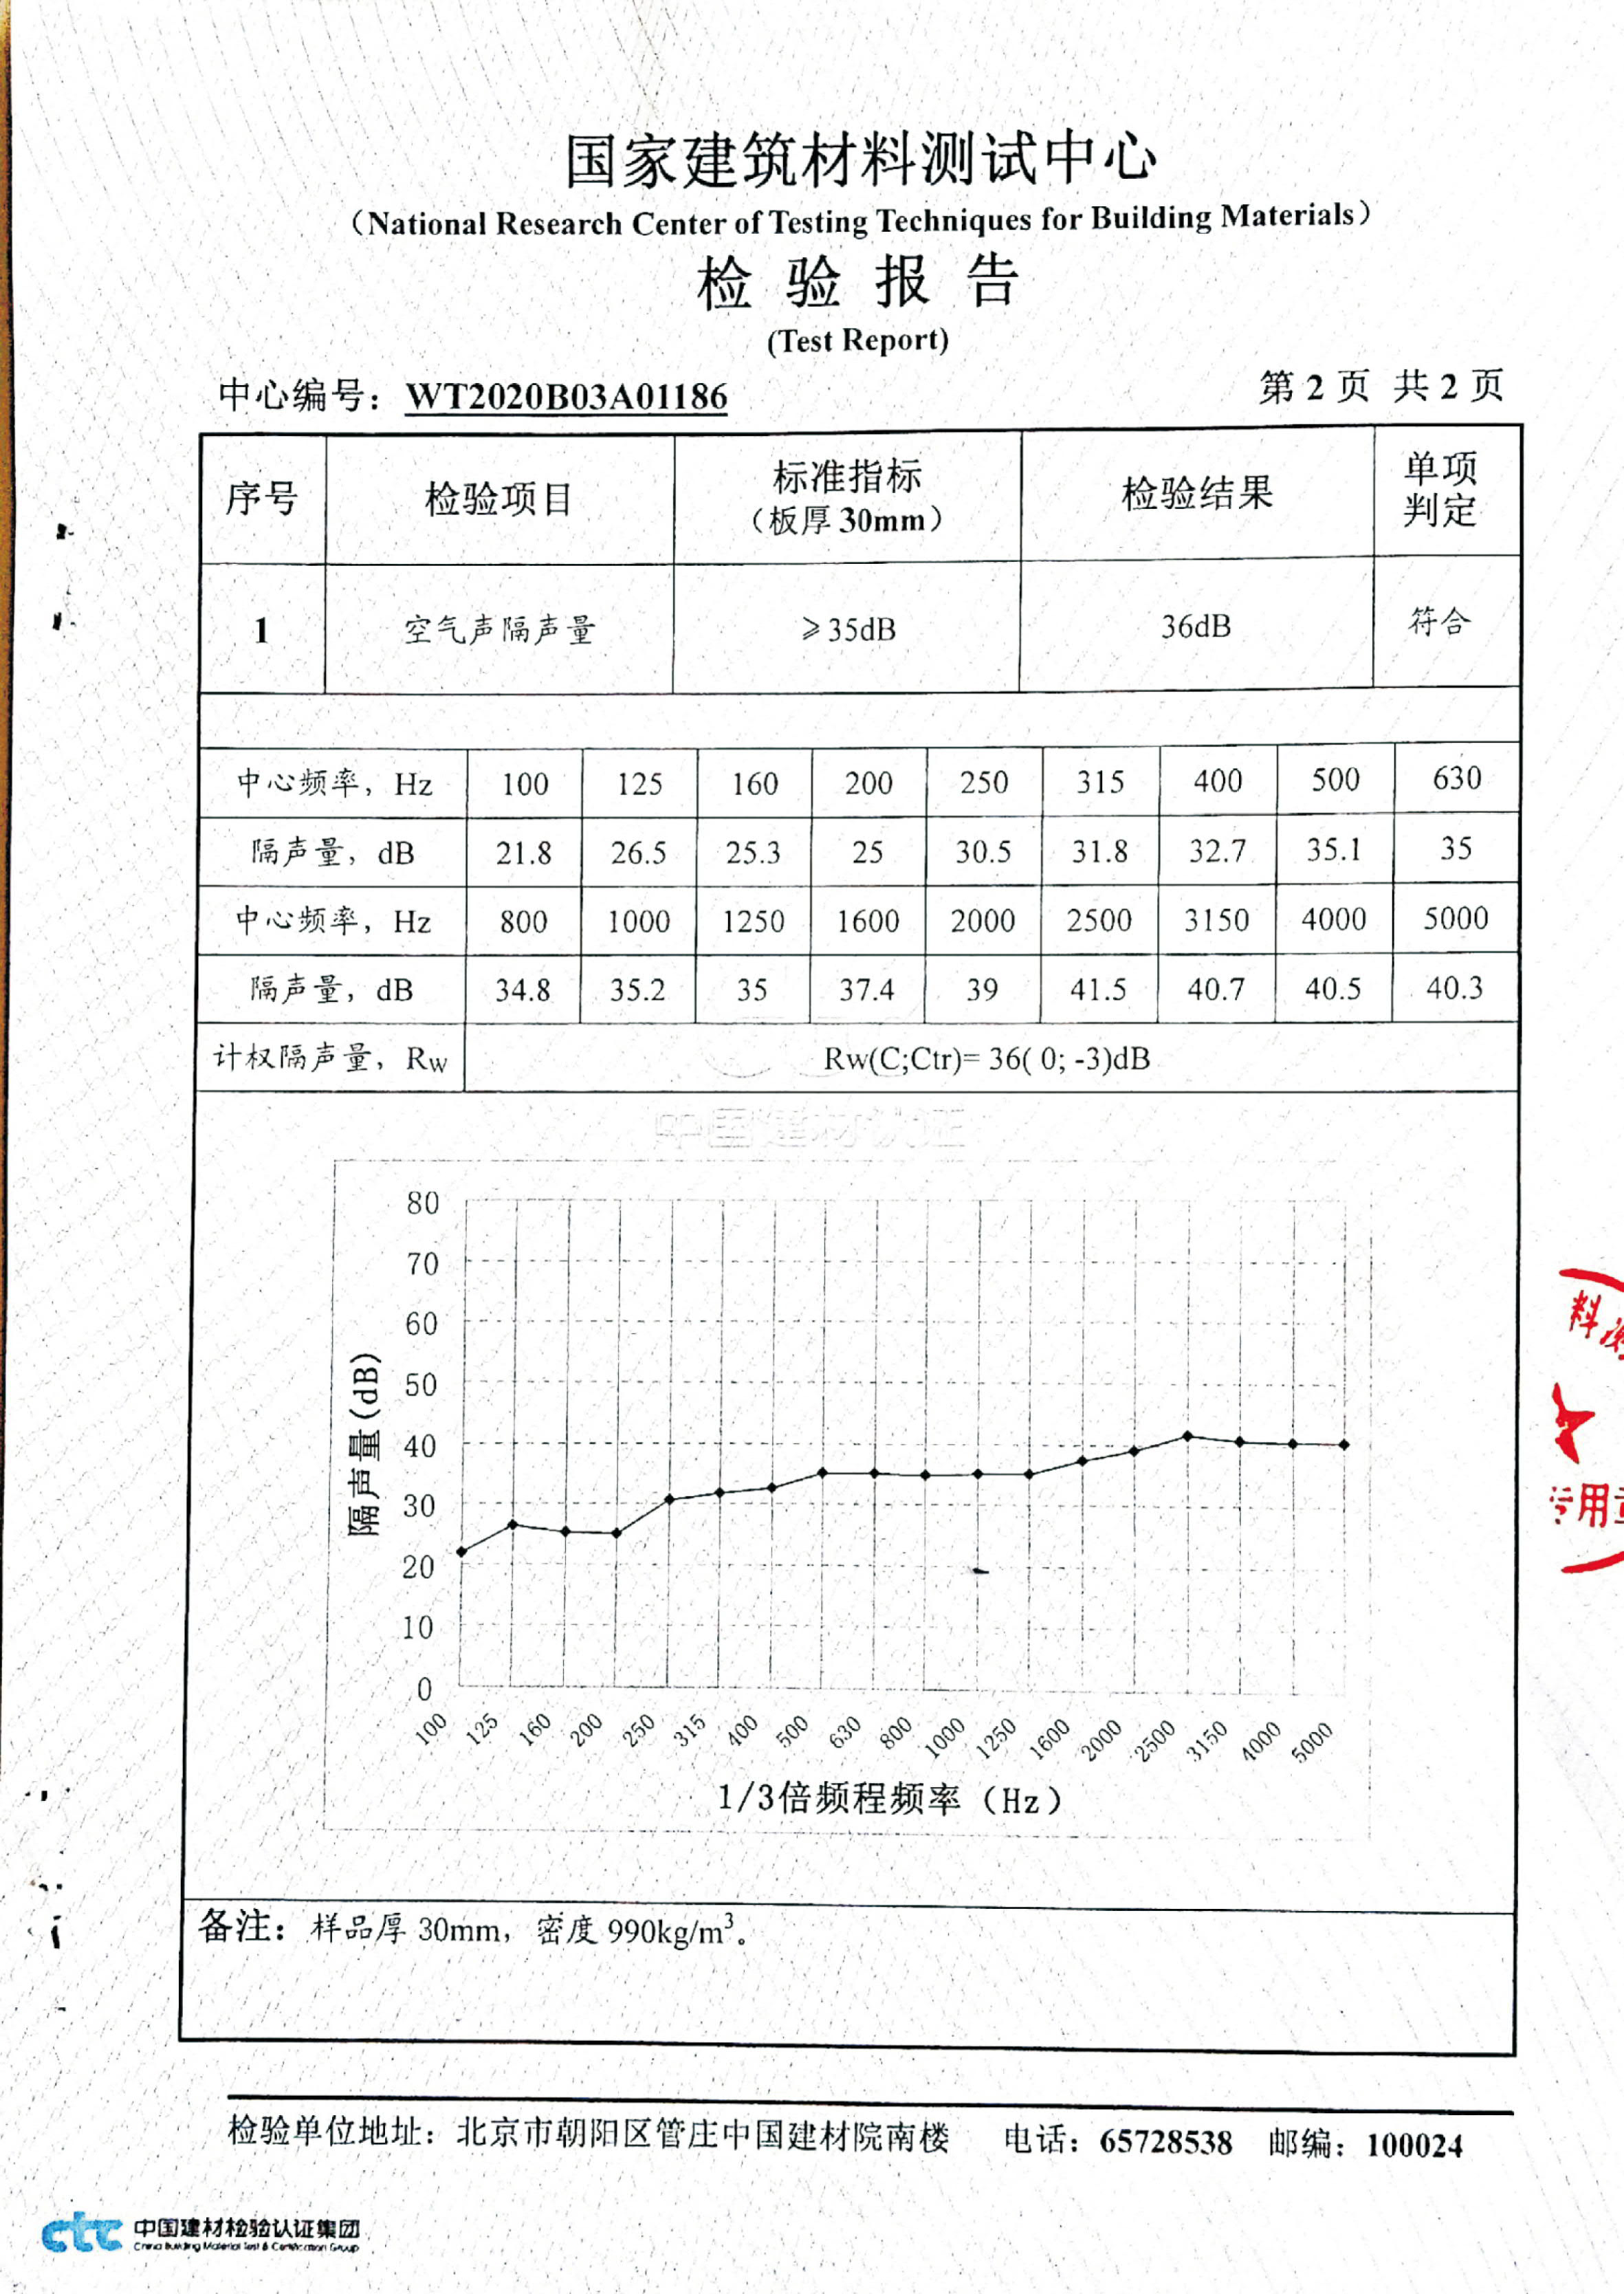 国家建筑材料测试中心
（National Research Center of Testing Techniques for Building Materials）
检 验 报 告
(Test Report)
中心编号：WT2020B03A01186 第 2 页 共 2 页
序号 检验项目 标准指标（板厚 30mm） 检验结果 单项判定
1 空气声隔声量 ≥35dB 36dB 符合
中心频率，Hz 100 125 160 200 250 315 400 500 630
隔声量，dB 21.8 26.5 25.3 25 30.5 31.8 32.7 35.1 35
中心频率，Hz 800 1000 1250 1600 2000 2500 3150 4000 5000
隔声量，dB 34.8 35.2 35 37.4 39 41.5 40.7 40.5 40.3
计权隔声量，Rw Rw(C;Ctr)= 36( 0; -3)dB
中国建材认证
80
70
60
50
40
30
20
10
0
隔声量(dB)
100 125 160 200 250 315 400 500 630 800 1000 1250 1600 2000 2500 3150 4000 5000
1/3倍频程频率（Hz）
料测
用章
备注：样品厚 30mm，密度 990kg/m³。
检验单位地址：北京市朝阳区管庄中国建材院南楼 电话：65728538 邮编：100024
ctc 中国建材检验认证集团
China Building Material Test & Certification Group